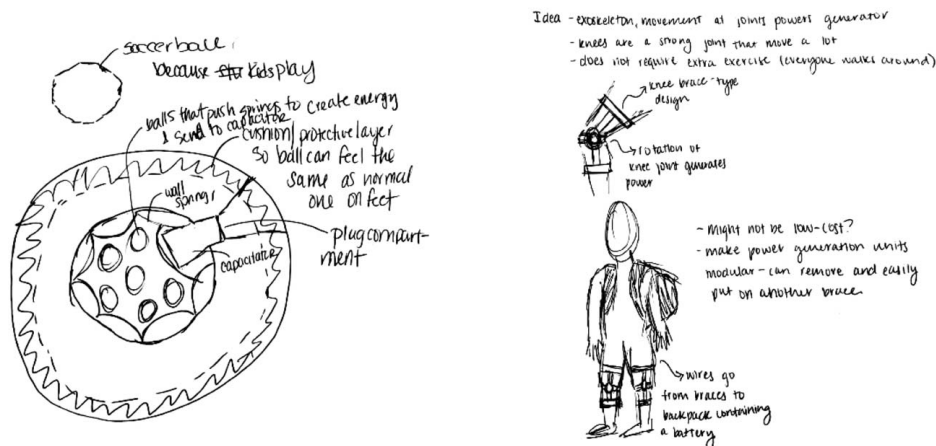 soccerball
because kids play
balls that push springs to create energy
& send to capacitor
cushion/protective layer
so ball can feel the
same as normal
one on feet
wall
springs
capacitator
plug compart-
ment
Idea - exoskeleton, movement at joints powers generator
- knees are a strong joint that move a lot
- does not require extra exercise (everyone walks around)
knee brace-type
design
rotation of
knee joint generates
power
- might not be low-cost?
- make power generation units
modular - can remove and easily
put on another brace.
wires go
from braces to
backpack containing
a battery